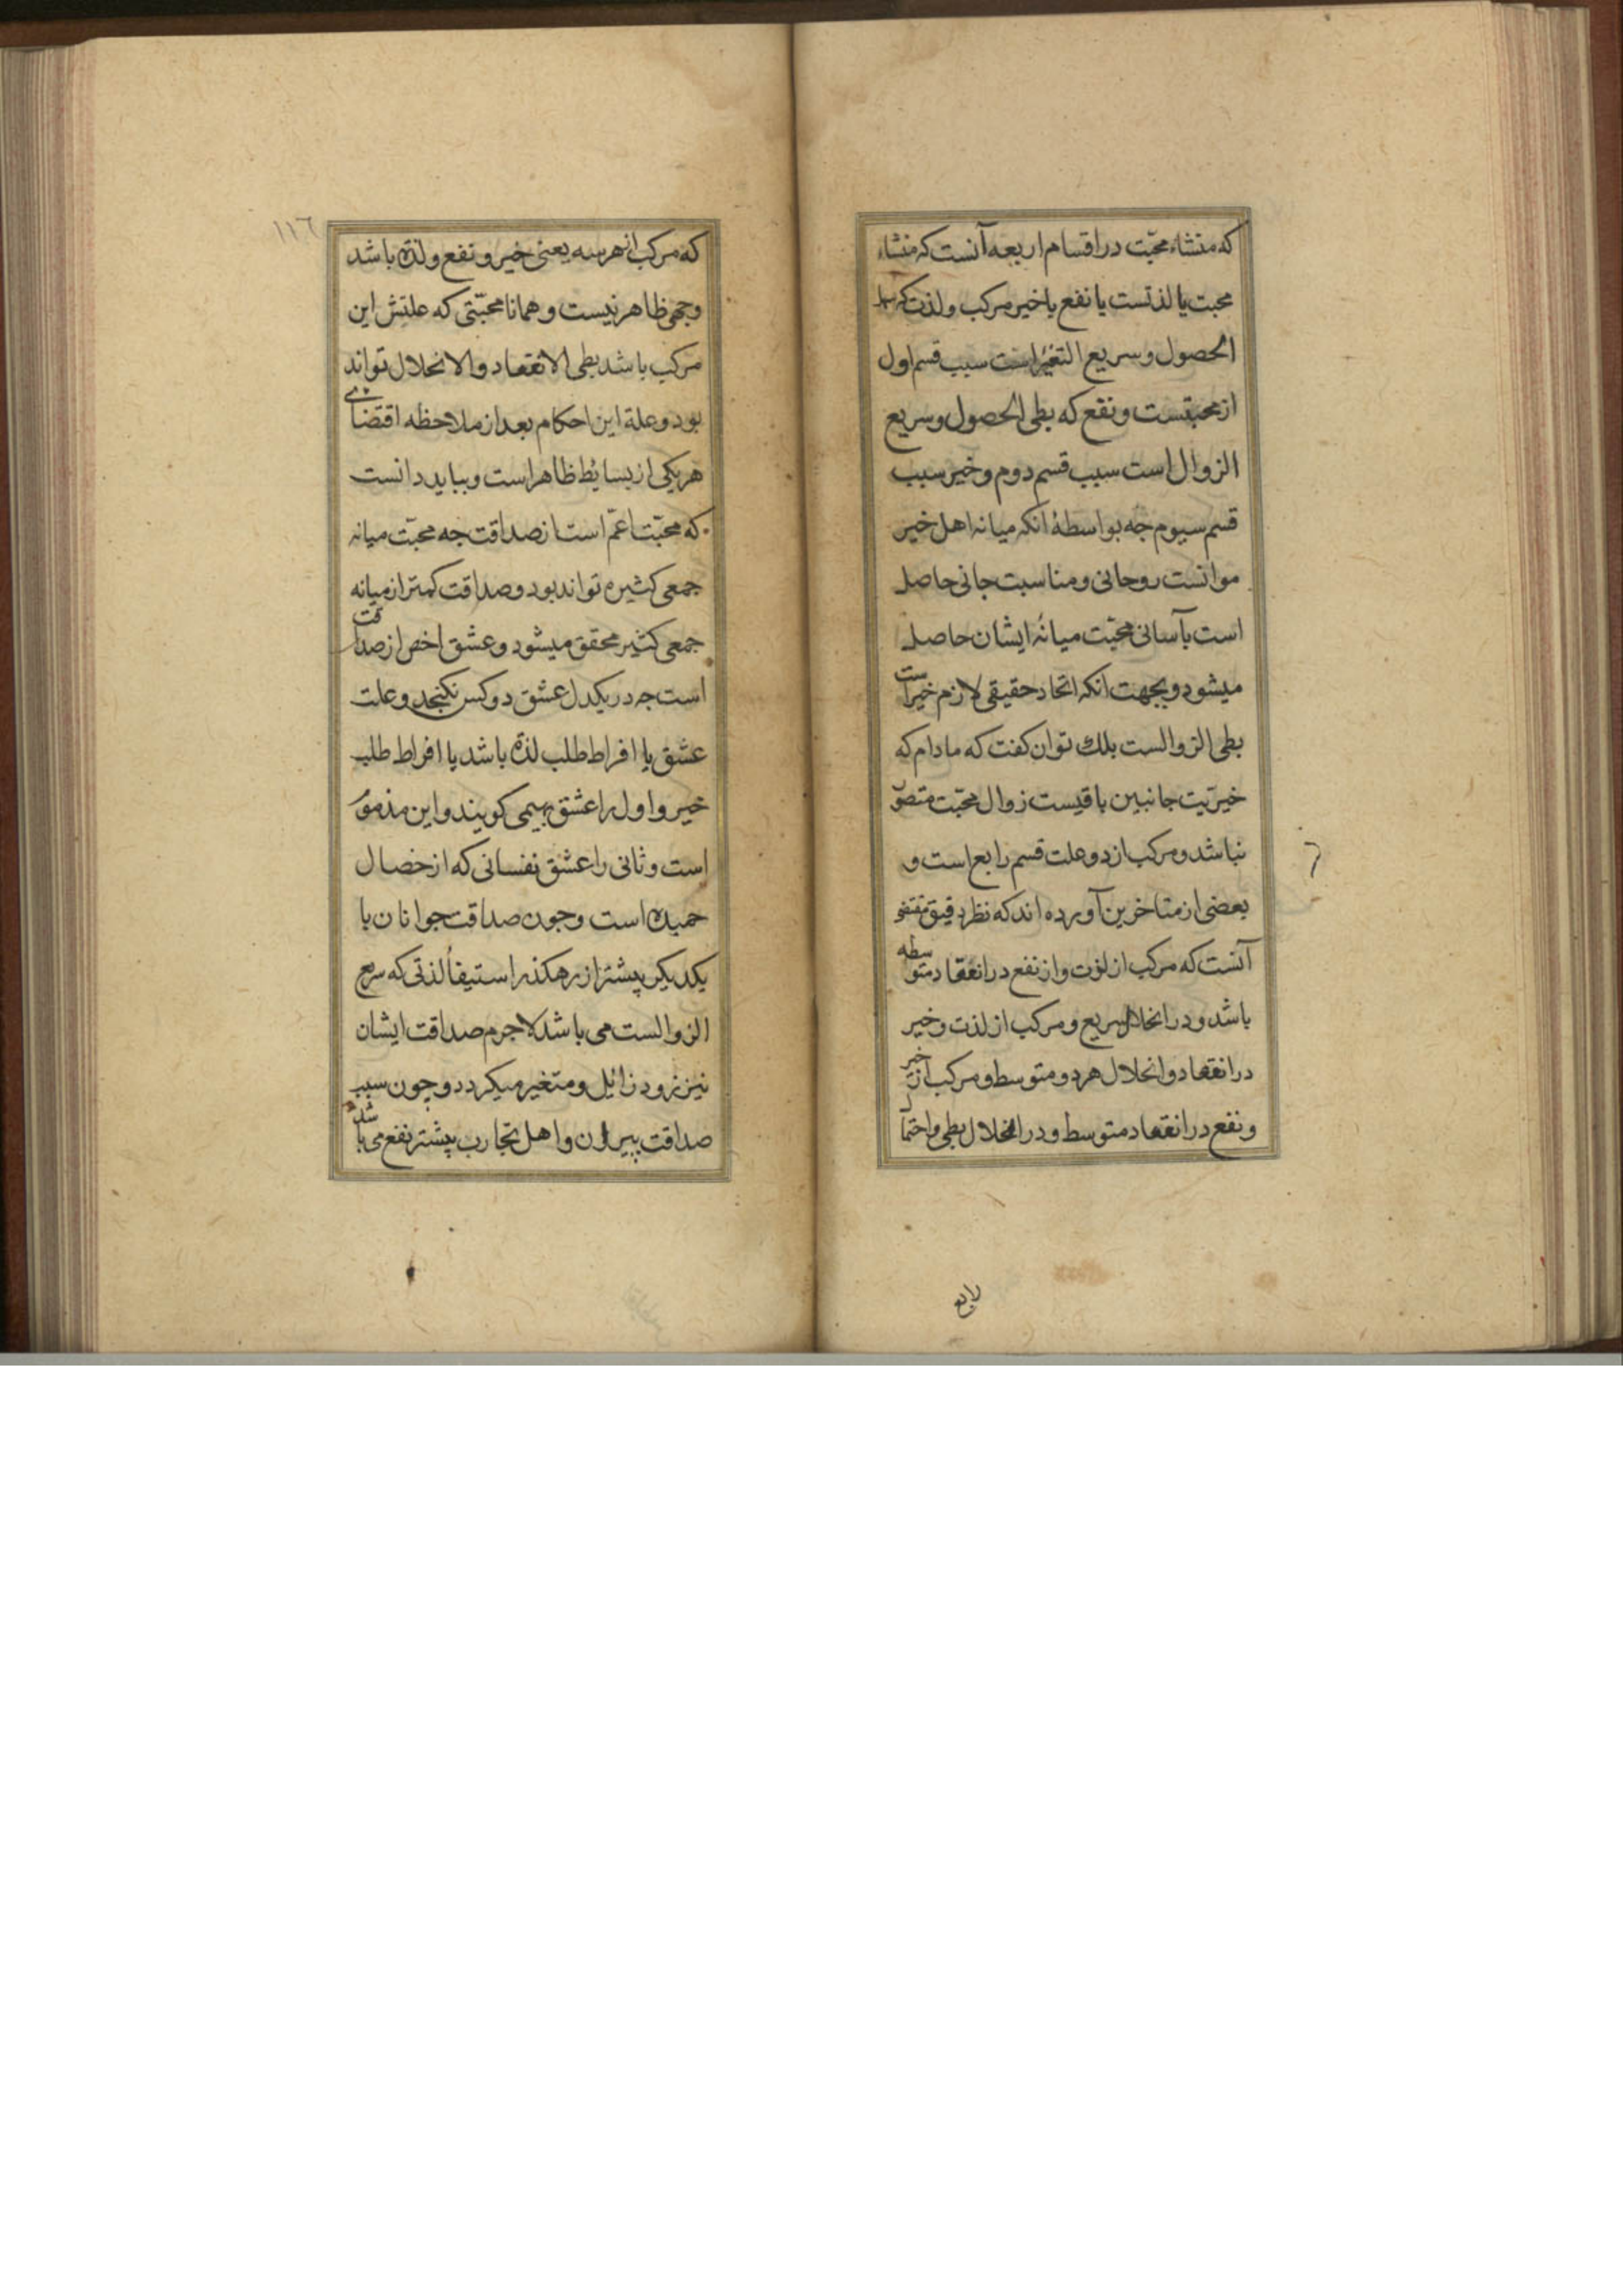 که منشاء محبّت در اقسام اربعه آنست که منشاء
محبت یا لذتست یا نفع یا خیر مرکب ولذت که سهل
الحصول وسریع التغیر است سبب قسم اول
از محبتست ونفع که بطی الحصول وسریع
الزوال است سبب قسم دوم وخیر سبب
قسم سیوم جه بواسطهٔ انکه میانه اهل خیر
موانست روحانی ومناسبت جانی حاصل
است بآسانی محبّت میانهٔ ایشان حاصل
میشود وبجهت انکه اتحاد حقیقی لازم خیر است
بطی الزوالست بلك توان کفت که مادام که
خیریّت جانبین باقیست زوال محبّت متصوّ
نباشد ومرکب از دو علت قسم رابع است و
بعضی از متاخرین آورده اند که نظر دقیق مقتضی
آنست که مرکب از لذت واز نفع در انعقاد متوسطه
باشد ودر انحلال سریع ومرکب از لذت وخیر
در انعقاد وانحلال هر دو متوسط ومرکب از خیر
ونفع در انعقاد متوسط ودر انحلال بطی واحتما
رابع
١١٦
که مرکب از هر سه یعنی خیر ونفع ولذة باشد
وجهی ظاهر نیست وهمانا محبّتی که علتش این
مرکب باشد بطی الانعقاد والانحلال تواند
بود وعلة این احکام بعد از ملاحظه اقتضای
هر یکی از بسائط ظاهر است وبباید دانست
که محبّت اعمّ است از صداقت جه محبّت میانه
جمعی کثیره تواند بود وصداقت کمتر از میانه
جمعی کثیر محقق میشود وعشق اخص از صداقت
است جه در یکدل عشق دو کس نکنجد وعلت
عشق یا افراط طلب لذة باشد یا افراط طلب
خیر واول را عشق بهیمی کویند واین مذموم
است وثانی را عشق نفسانی که از خصال
حمیده است وجون صداقت جوانان با
یکدیکر پیشتر از رهکذر استیفأ لذتی که سریع
الزوالست می باشد لاجرم صداقت ایشان
نیز زود زائل ومتغیر میکردد وچون سبب
صداقت پیران واهل تجارب پیشتر نفع می باشد